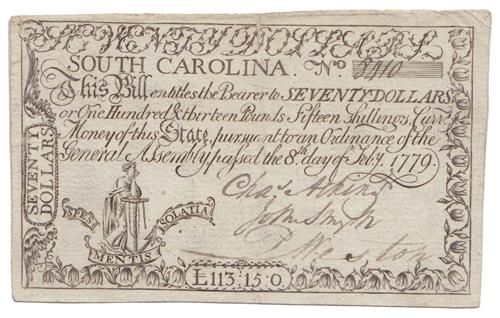 SEVENTY DOLLARS
SOUTH CAROLINA. No. 8410
This Bill entitles the Bearer to SEVENTY DOLLARS
or One Hundred & thirteen Pounds Fifteen Shillings, Curr.
Money of this State, pursuant to an Ordinance of the
General Assembly, passed the 8th day of Feb.y. 1779
SEVENTY
DOLLARS
SPES MENTIS SOLATIA
Chas. Atkins
John Smyth
P Weston
£113:15:0